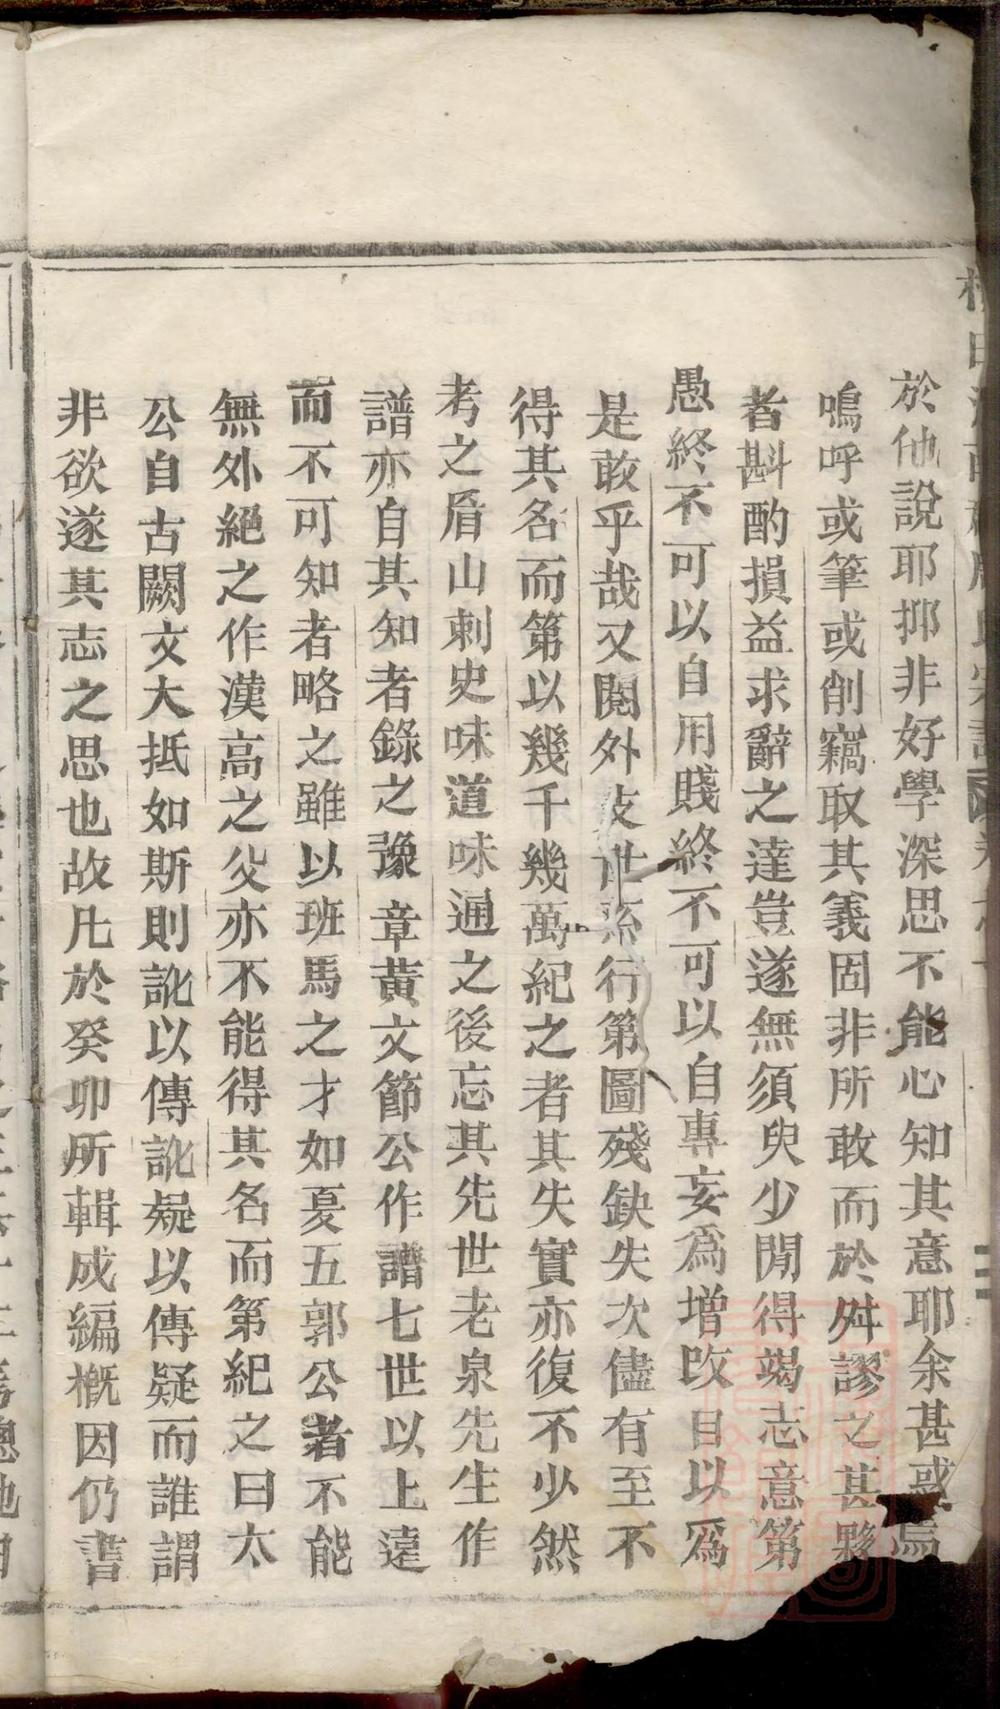 於他說耶抑非好學深思不能心知其意耶余甚惑焉
嗚呼或筆或削竊取其義固非所敢而於舛謬之甚夥
者斟酌損益求辭之達豈遂無須臾少閒得竭志意第
愚終不可以自用賤終不可以自專妄爲增改目以爲
是敢乎哉又閱外支世系行第圖殘缺失次儘有至不
得其名而第以幾千幾萬紀之者其失實亦復不少然
考之眉山刺史味道味道之後忘其先世老泉先生作
譜亦自其知者錄之豫章黃文節公作譜七世以上遠
而不可知者略之雖以班馬之才如夏五郭公者不能
無外絕之作漢高之父亦不能得其名而第紀之曰太
公自古闕文大抵如斯則訛以傳訛疑以傳疑而誰謂
非欲遂其志之思也故凡於癸卯所輯成編概因仍書